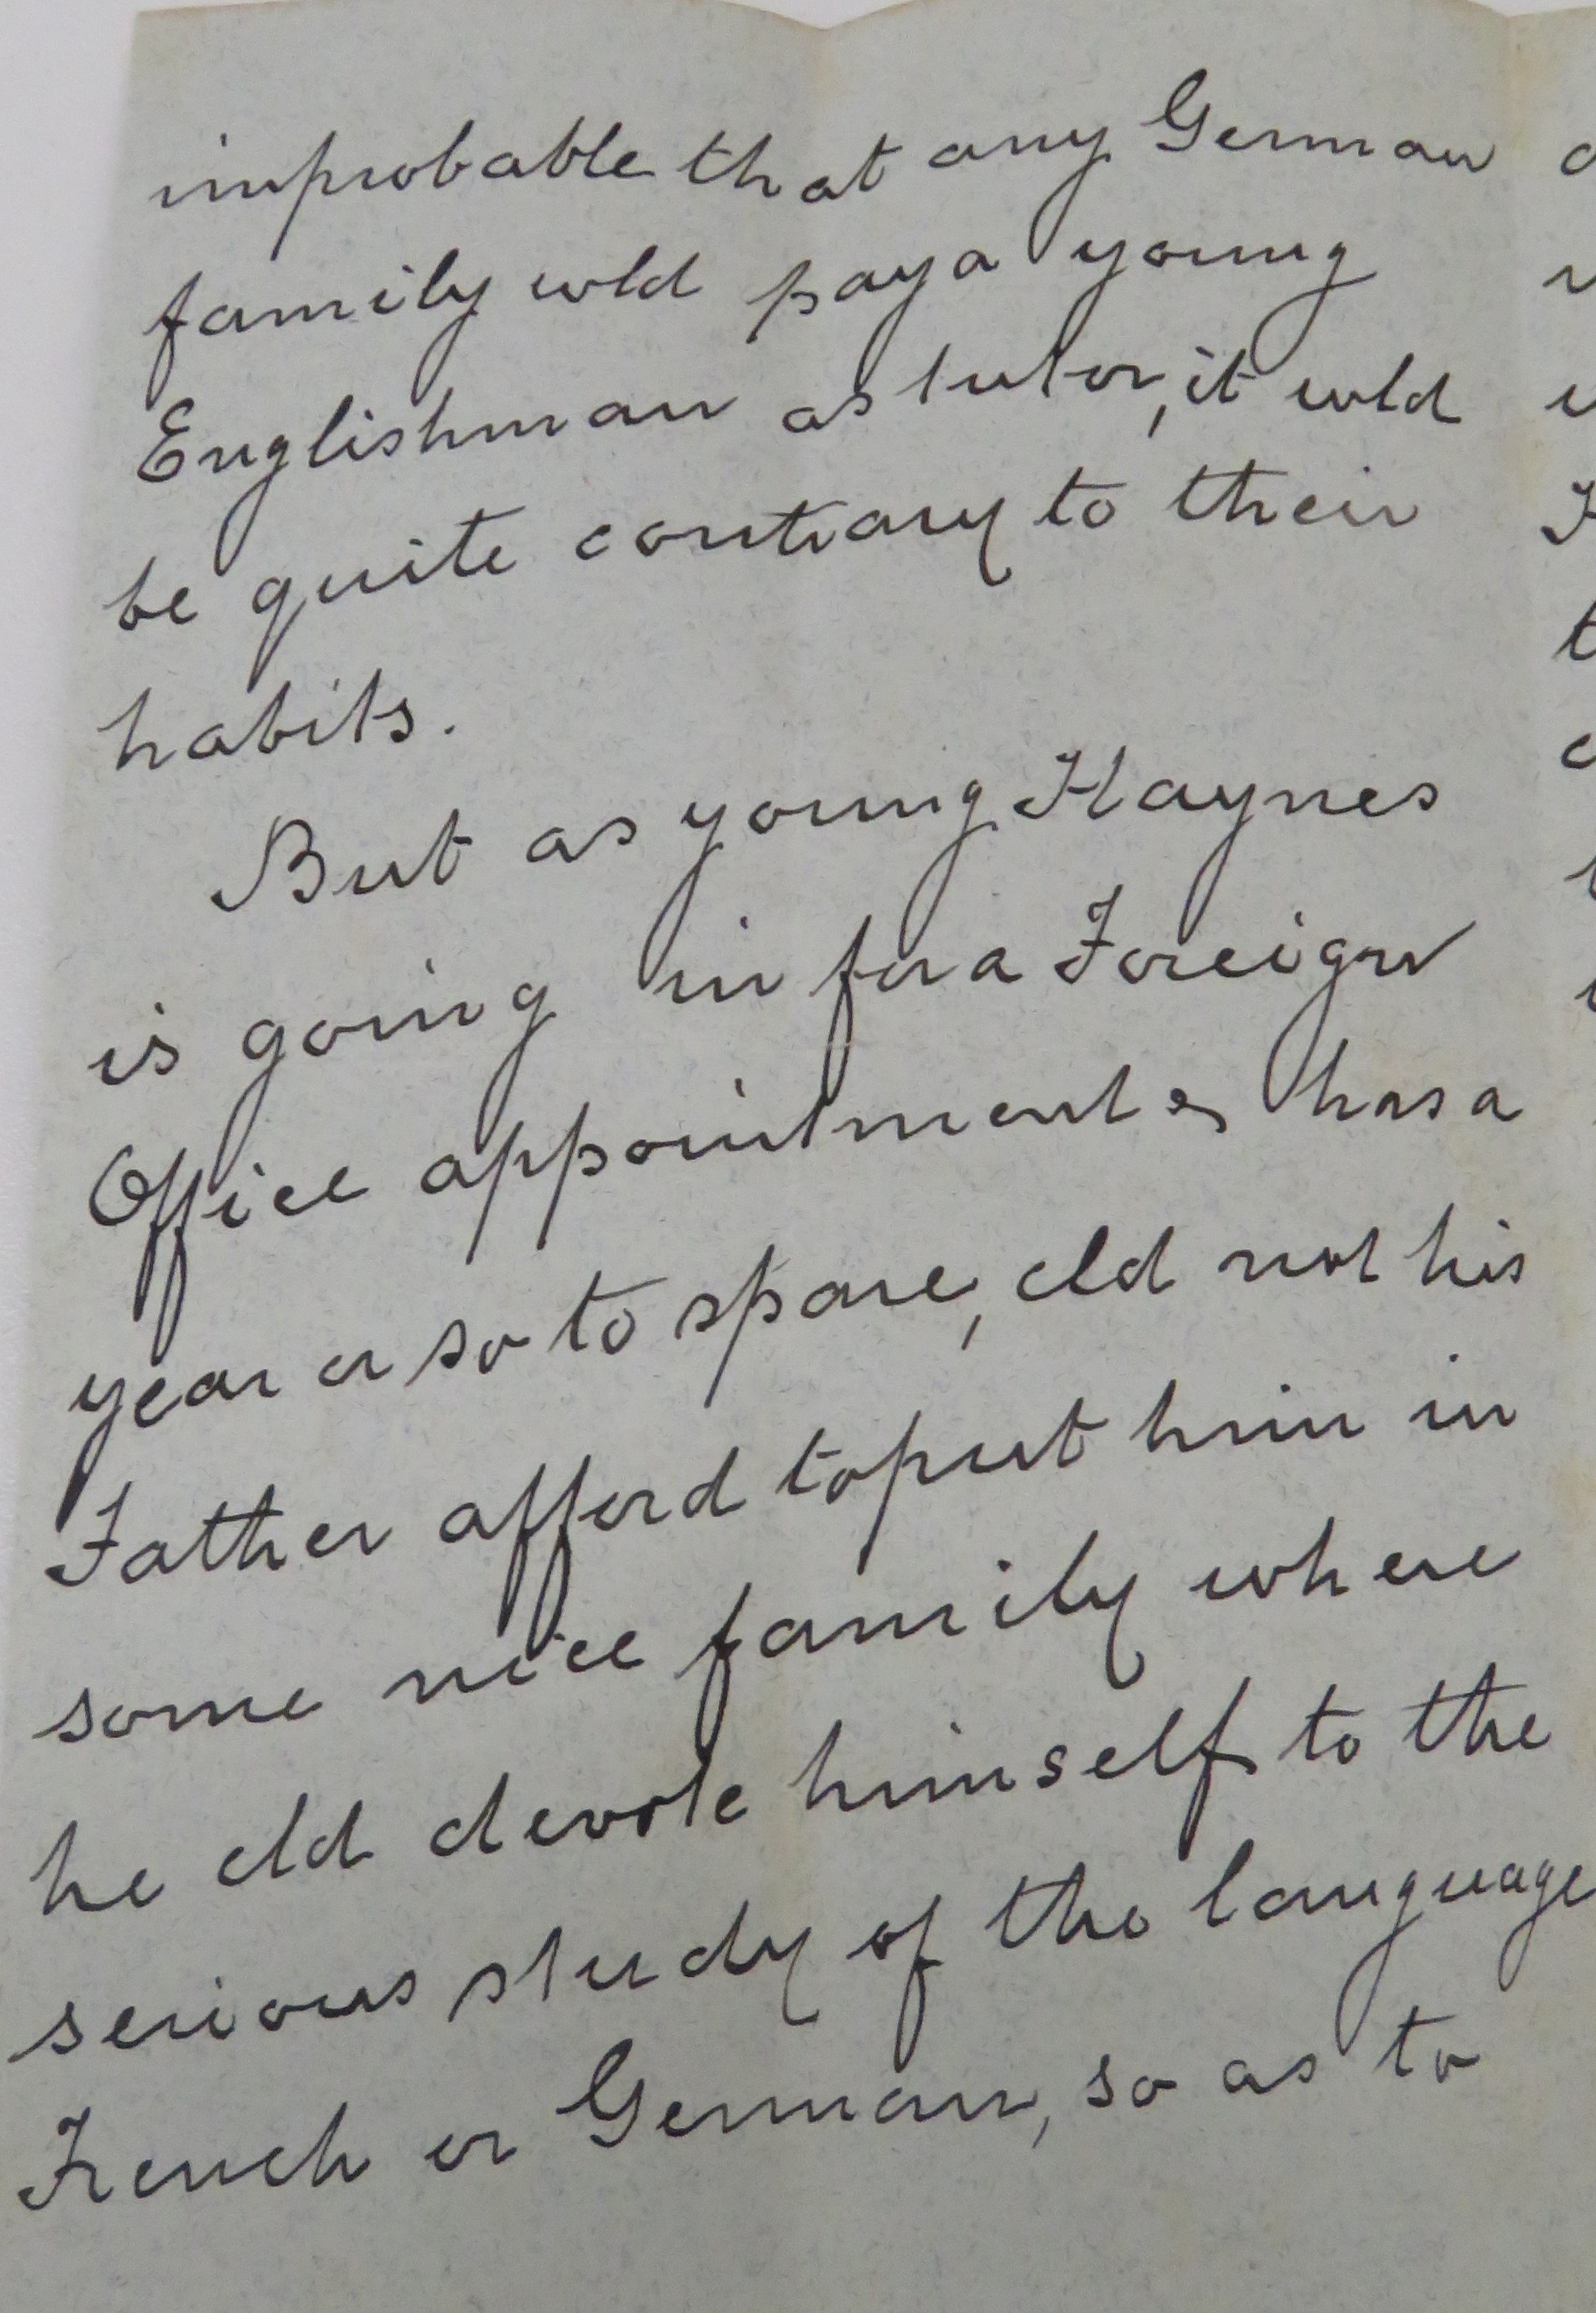 improbable that any German
family wld pay a young
Englishman as tutor, it wld
be quite contrary to their
habits.
But as young Haynes
is going in for a Foreign
Office appointment & has a
year or so to spare, cld not his
Father afford to put him in
some nice family where
he cld devote himself to the
serious study of the language
French or German, so as to